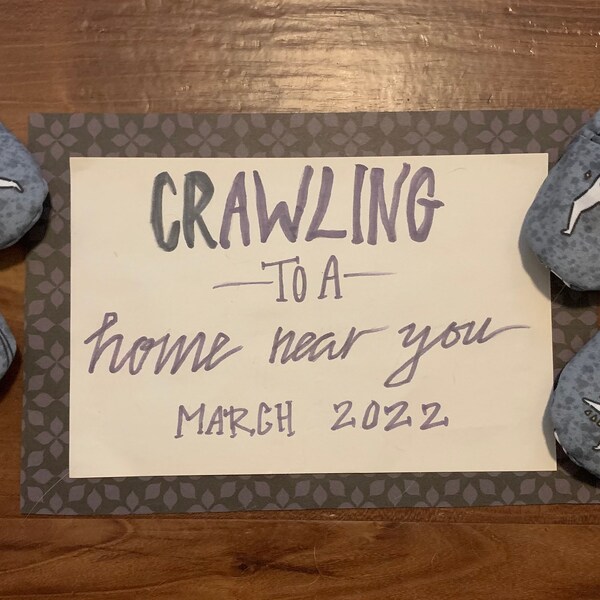 CRAWLING
—TO A—
home near you
MARCH 2022